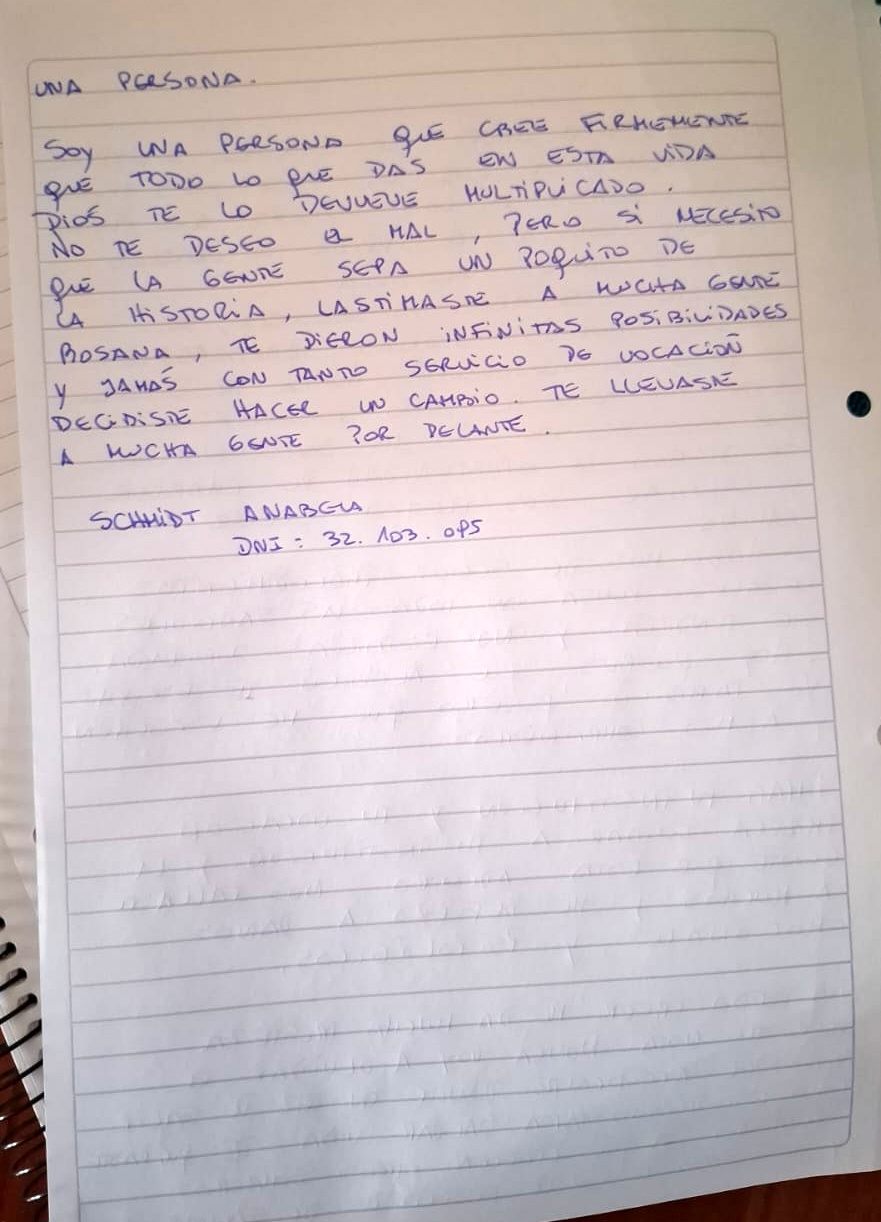 UNA PERSONA.
SOY UNA PERSONA QUE CREE FIRMEMENTE
QUE TODO LO QUE DAS EN ESTA VIDA
DIOS TE LO DEVUELVE MULTIPLICADO.
NO TE DESEO EL MAL, PERO SI NECESITO
QUE LA GENTE SEPA UN POQUITO DE
LA HISTORIA, LASTIMASTE A MUCHA GENTE
ROSANA, TE DIERON INFINITAS POSIBILIDADES
Y JAMÁS CON TANTO SERVICIO DE VOCACIÓN
DECIDISTE HACER UN CAMBIO. TE LLEVASTE
A MUCHA GENTE POR DELANTE.
SCHMIDT ANABELA
DNI: 32.103.095